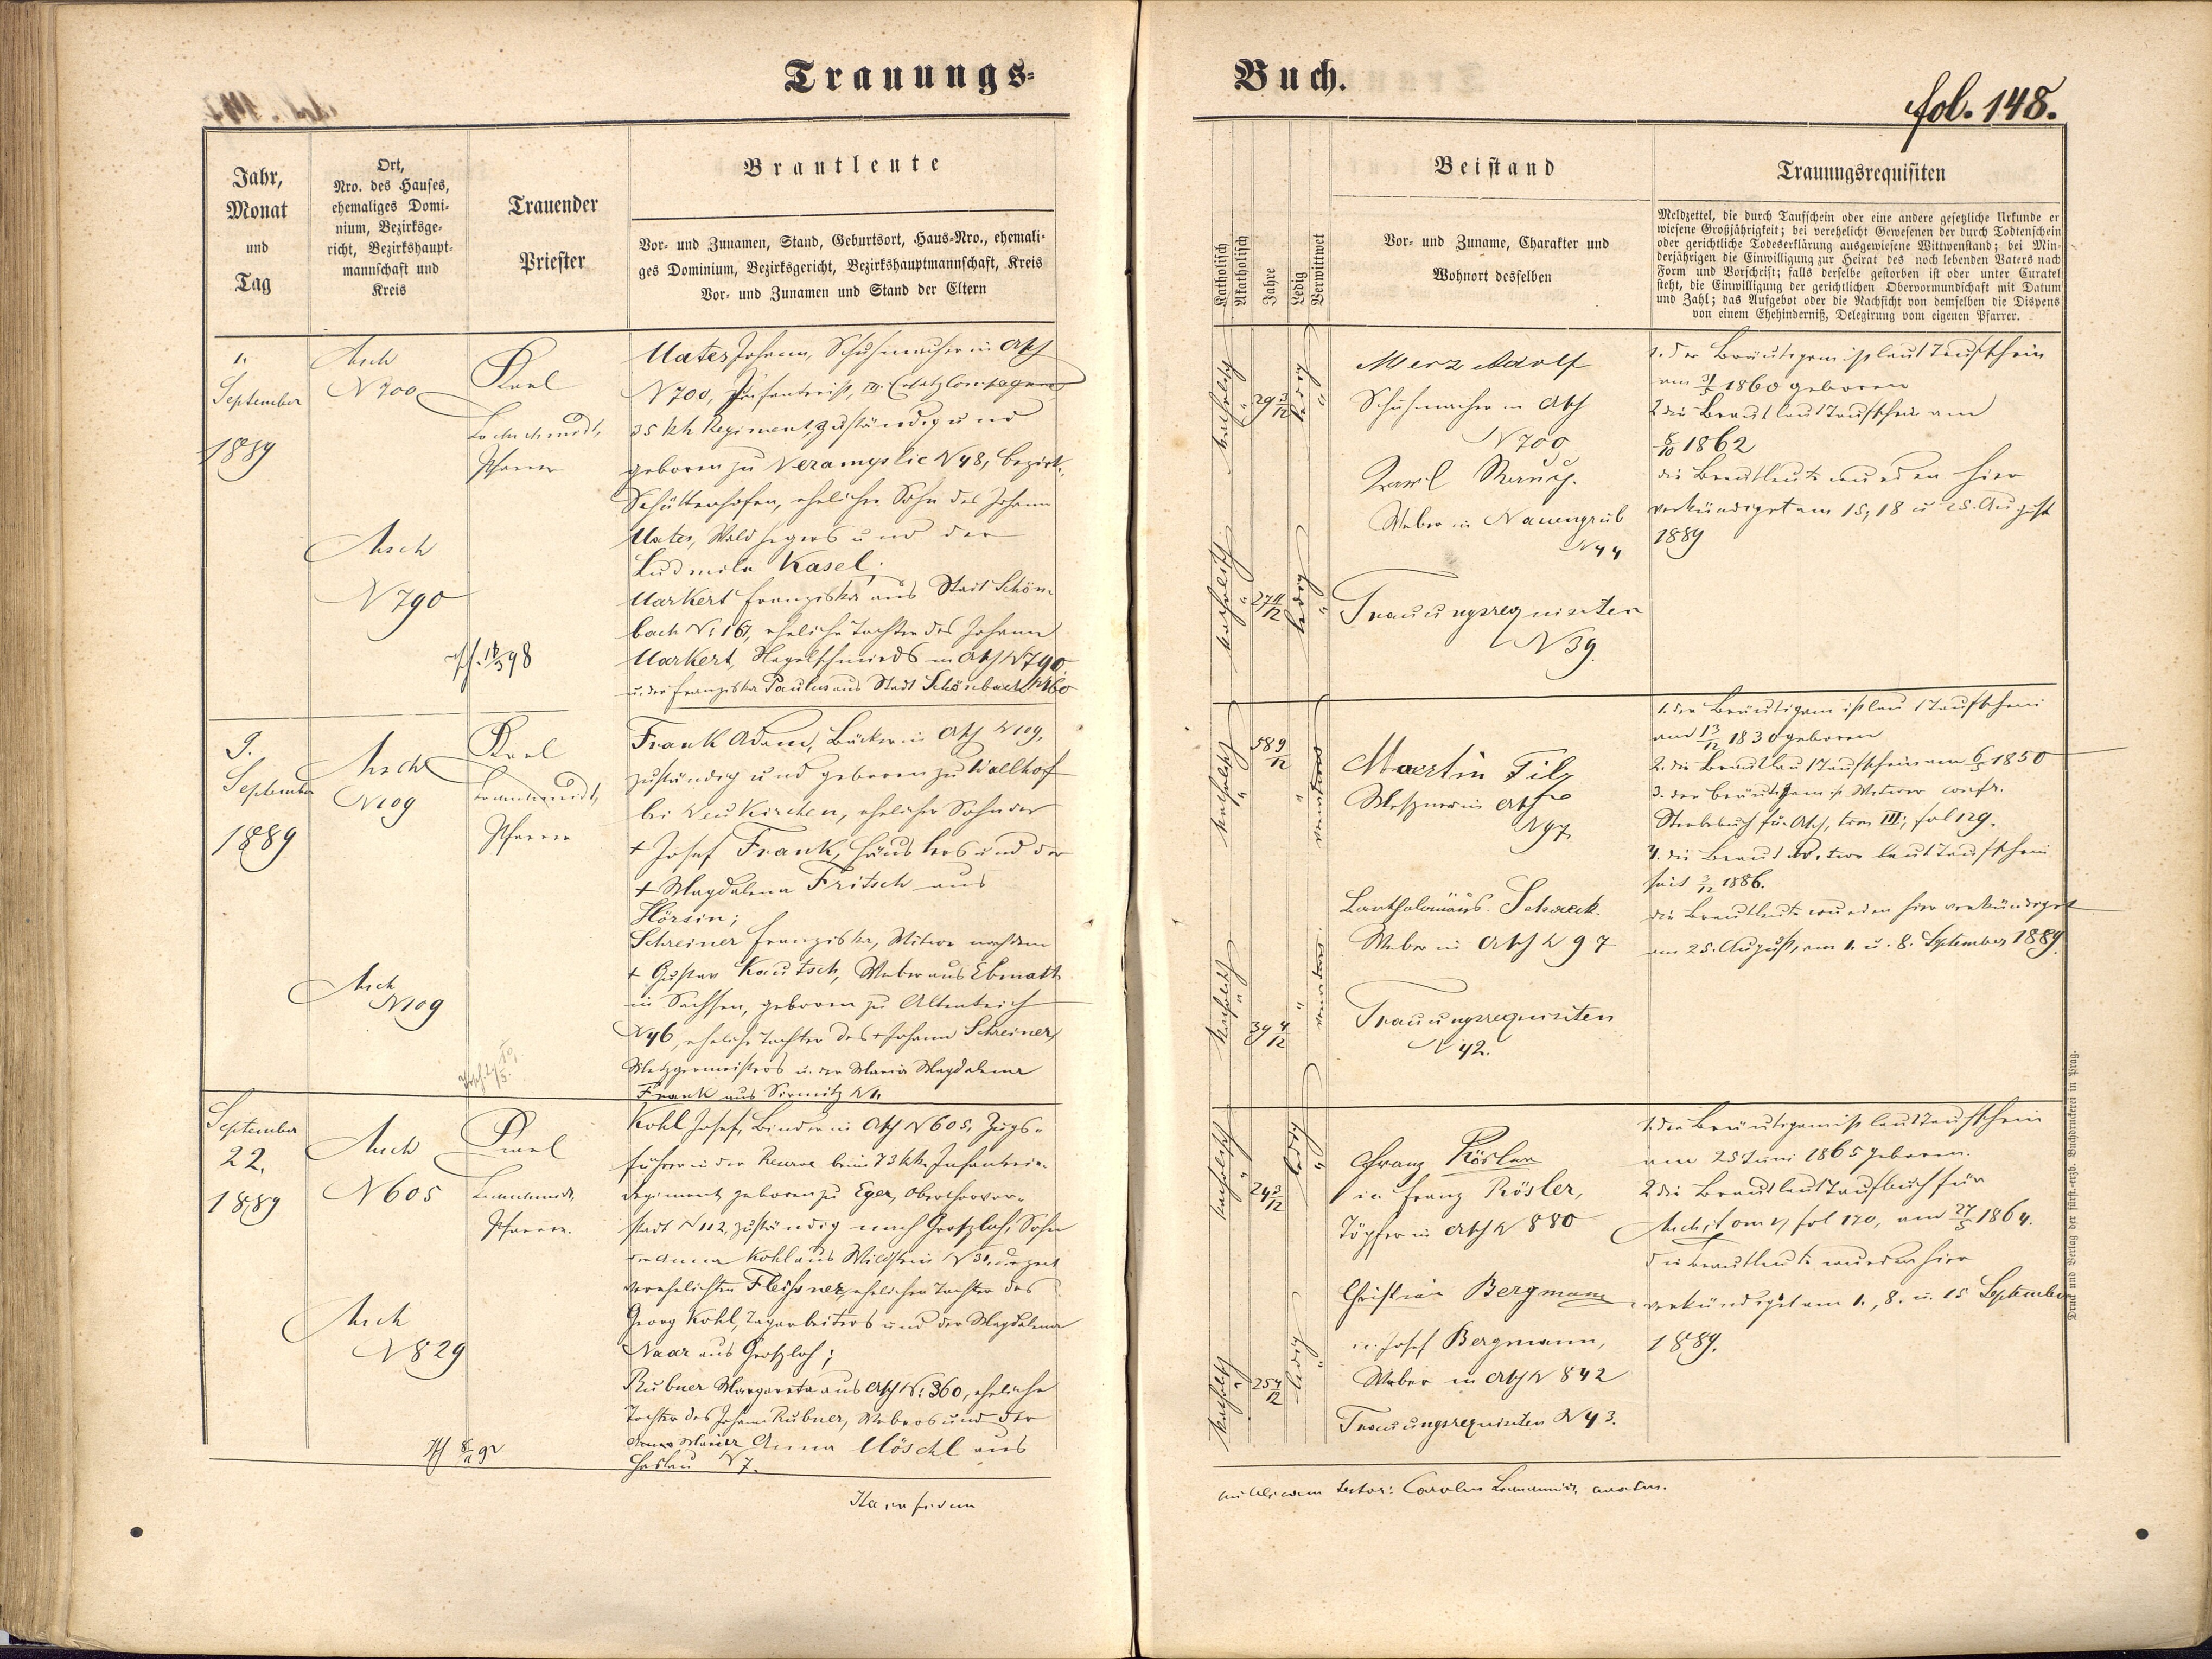 Trauungs-
Jahr,
Monat
und
Tag
Ort,
Nro. des Hauses,
ehemaliges Domi-
nium, Bezirksge-
richt, Bezirkshaupt-
mannschaft und
Kreis
Trauender
Priester
Brautleute
Vor- und Zunamen, Stand, Geburtsort, Haus-Nro., ehemali-
ges Dominium, Bezirksgericht, Bezirkshauptmannschaft, Kreis
Vor- und Zunamen und Stand der Eltern
1.
September
1889
Asch
N 700
Asch
N 790
Karl
Pfarrer
Mates Johann, Schuhmacher in Asch
N 700, Infanterist, IV. Ersatzcompagnie
35 kk Regiment, zuständig und
geboren zu Nezamyslic N 48, Bezirk
Schüttenhofen, ehelicher Sohn des Johann
Mates, Waldhegers und der
Ludmila Kasel.
Markert Franziska aus Stadt Schön-
bach N: 161, eheliche Tochter des Johann
Markert, Nagelschmieds in Asch N 790
u. der Franziska Paulus aus Stadt Schönbach N 160
9.
September
1889
Asch
N 109
Asch
N 109
Karl
Pfarrer
Frank Adam, Bäcker in Asch N 109,
zuständig und geboren zu Wallhof
bei Neukirchen, ehelicher Sohn des
+ Josef Frank, Häuslers und der
+ Magdalena Fritsch aus
Hörsin;
Schreiner Franziska, Witwe nach dem
+ Gustav Kautsch, Weber aus Ebmath
in Sachsen, geboren zu Altenteich
N 46, eheliche Tochter des + Johann Schreiner,
Metzgermeisters u. der Maria Magdalena
Frank aus Sirmitz N 1.
September
22.
1889
Asch
N 605
Asch
N 829
Karl
Pfarrer.
Kohl Josef, Binder in Asch N 605, Zugs-
führer in der Reserve beim 73 kk. Infanterie-
Regiment, geboren zu Eger, Oberthorvor-
stadt N 112, zuständig nach Großloh, Sohn
der Anna Kohl aus Wildstein N 31, derzeit
verehelichten Fleißner, ehelicher Tochter des
Georg Kohl, Tagarbeiters und der Magdalena
Naar aus Großloh;
Rubner Margareta aus Asch N: 360, eheliche
Tochter des Johann Rubner, Webers und der
Anna Möschl aus
Haslau N 7.
Ita in fidem
Buch.
fol. 148.
Katholisch
Akatholisch
Jahre
Ledig
Verwittwet
Beistand
Vor- und Zuname, Charakter und
Wohnort desselben
Trauungsrequisiten
Meldzettel, die durch Taufschein oder eine andere gesetzliche Urkunde er
wiesene Großjährigkeit; bei verehelicht Gewesenen der durch Todtenschein
oder gerichtliche Todeserklärung ausgewiesene Wittwenstand; bei Min-
derjährigen die Einwilligung zur Heirat des noch lebenden Vaters nach
Form und Vorschrift; falls derselbe gestorben ist oder unter Curatel
steht, die Einwilligung der gerichtlichen Obervormundschaft mit Datum
und Zahl; das Aufgebot oder die Nachsicht von demselben die Dispens
von einem Ehehinderniß, Delegirung vom eigenen Pfarrer.
katholisch
29 3/12
ledig
katholisch
27 11/12
ledig
Merz Adolf
Schuhmacher in Asch
N 700
Karl
Weber in Nauengrub
N 44
Trauungsrequisiten
N 39.
1. Der Bräutigam ist laut Taufschein
am 1860 geboren
2. die Braut laut Taufschein am
8/10 1862
die Brautleute wurden hier
verkündiget am 15, 18 u 25. August
1889
katholisch
58 9/12
verwitwet
katholisch
39 4/12
verwitwet
Martin Filz
Metzner in Asch
N 97
Bartholomäus Schack.
Weber in Asch N 97
Trauungsrequisiten
N 42.
1. der Bräutigam ist laut Taufschein
am 13/12 1830 geboren
2. die Braut laut Taufschein am 6/5 1850
3. der Bräutigam ist Witwer
Sterbebuch für Asch, tom III, fol 129.
4. die Braut Witwe laut
seit 3/12 1886.
die Brautleute wurden hier verkündiget
am 25. August, am 1. u. 8. September 1889.
katholisch
24 3/12
ledig
katholisch
25 4/12
ledig
Franz Rösler
in Franz Rösler,
Töpfer in Asch N 880
Christian Bergmann
in Josef Bergmann,
Weber in Asch N 842
Trauungsrequisiten N 43.
1. der Bräutigam ist laut Taufschein
am 25 Juni 1865 geboren.
2. die Braut laut Taufbuch für
Asch, tom fol 170, am 27/5 1864.
die Brautleute wurden hier
verkündiget am 1., 8. u. 15 September
1889.
Druck und Verlag der fürst.-erzb. Buchdruckerei in Prag.